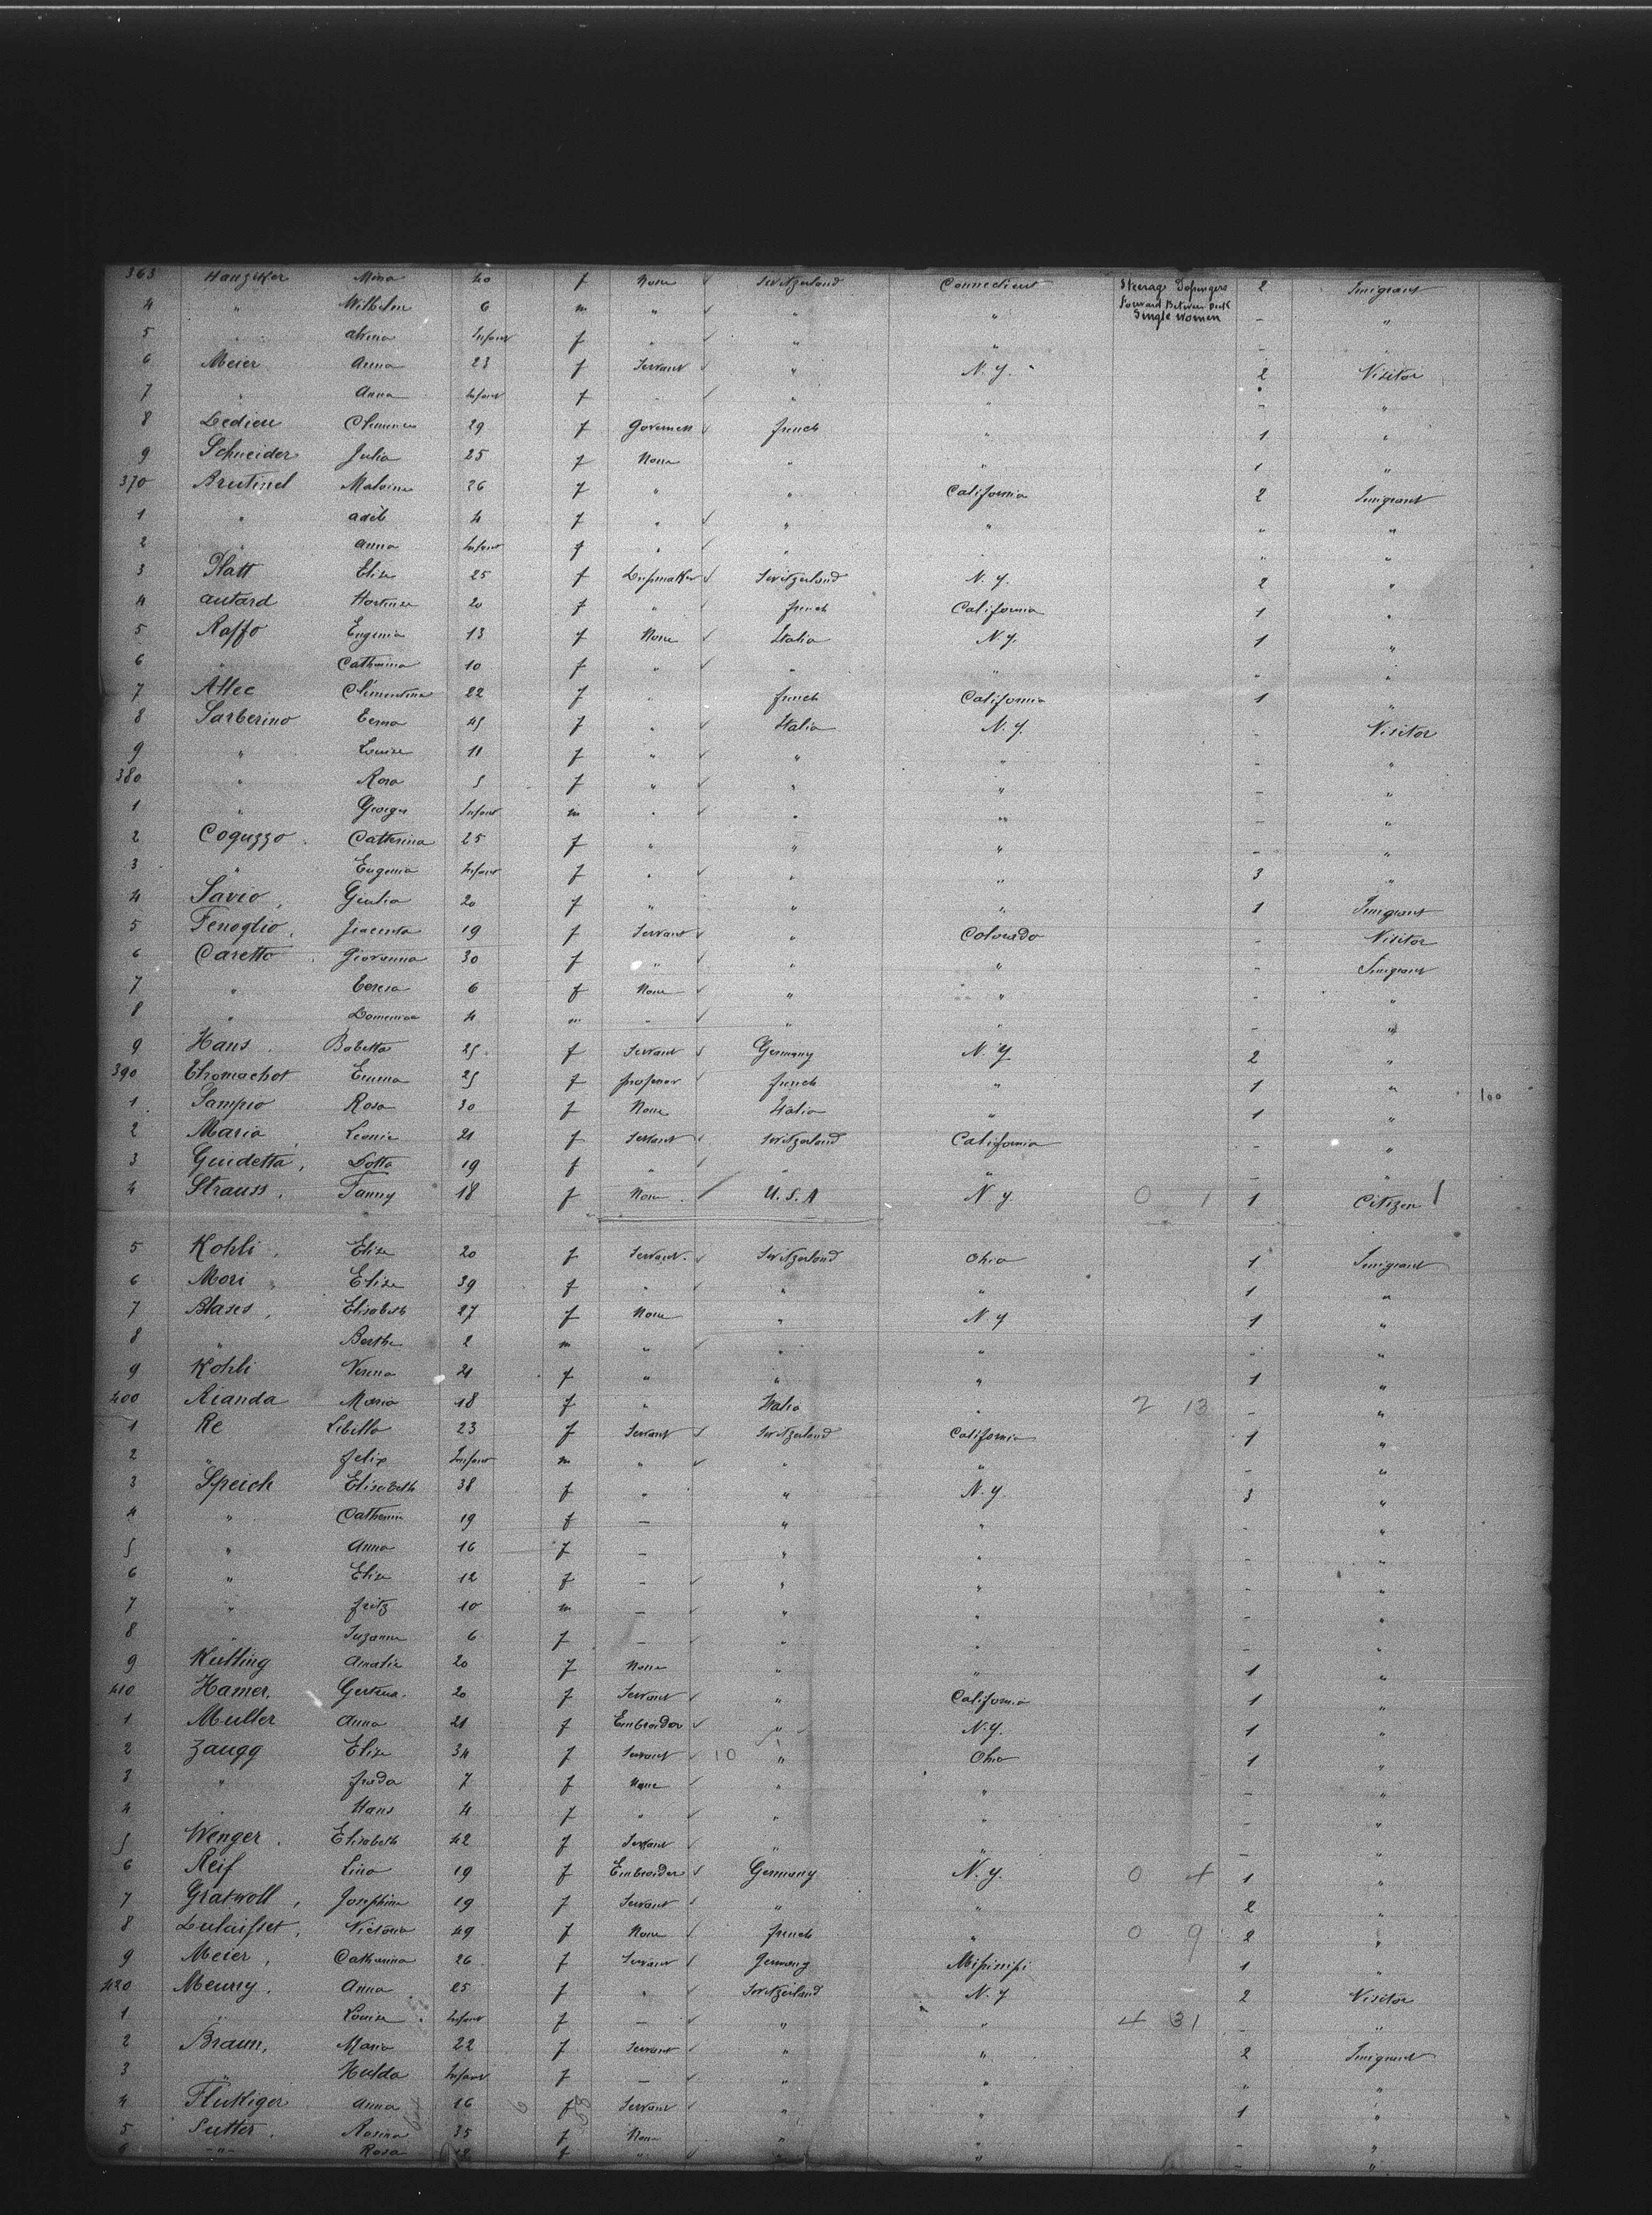 363 Hauziker Mina 40 f None ✓ Switzerland Connecticut Steerage Passengers Forward Between Deck Single Women 2 Imigrant
4 " Wilhelm 6 m " ✓ " " - "
5 " Infant f " ✓ " " - "
6 Meier Anna 23 f Servant ✓ " N.Y. 2 Visitor
7 " Anna Infant f - ✓ " " - "
8 Ledieu 29 f Governess ✓ french " 1 "
9 Schneider Julia 25 f None " " 1 "
370 Brutinel Malvina 26 f " " California 2 Imigrant
1 " 4 f " ✓ " " " "
2 " Anna Infant f " ✓ " " " "
3 Platt Elise 25 f Dressmaker ✓ Switzerland N.Y. 2 "
4 Autard Hortense 20 f " french California 1 "
5 Raffo Eugenia 13 f None ✓ Italia N.Y. 1 "
6 " Catharina 10 f " ✓ " " " "
7 Allec Clémentina 22 f " french California 1 "
8 Sarberino 45 f " ✓ Italia N.Y. - Visitor
9 " Louise 11 f " ✓ " " - "
380 " Rosa 5 f " ✓ " " - "
1 " Georges Infant m " ✓ " " - "
2 Coguzzo Catterina 25 f " " " - "
3 " Eugenia Infant f " ✓ " " 3 "
4 Savio, Giulia 20 f " " " 1 Imigrant
5 Fenoglio, Jiacinta 19 f Servant ✓ " Colorado - Visitor
6 Caretto Giovanna 30 f " ✓ " " - Imigrant
7 " Teresa 6 f None ✓ " " - "
8 " Domenica 4 m - ✓ " " - "
9 Hans Babetta 25 f Servant ✓ Germany N.Y 2 "
390 Thomachot Emma 25 f professor ✓ french " 1 " 100
1 Sampio Rosa 30 f None Italia " 1 "
2 Maria Leonie 21 f Servant ✓ Switzerland California - "
3 Guidetta, Dotta 19 f " ✓ " " - "
4 Strauss, Fanny 18 f None / U.S.A N.Y. 0 1 1 Citizen 1
5 Kohli, Elise 20 f Servant ✓ Switzerland Ohio 1 Imigrant
6 Mori Elise 39 f " ✓ " " 1 "
7 Blases, Elisabeth 27 f None " N Y 1 "
8 " Bertha 2 m " ✓ " " - "
9 Kohli Verena 21 f " " " 1 "
400 Rianda Maria 18 f " Italia " 2 13 - "
1 Re Libilla 23 f Servant ✓ Switzerland California 1 "
2 " felix Infant m " ✓ " " - "
3 Speich Elisabeth 38 f " " N.Y. 3 "
4 " Catherin 19 f - " " - "
5 " Anna 16 f - " " - "
6 " Elise 12 f - ✓ " " - "
7 " fritz 10 m - ✓ " " - "
8 " Suzanne 6 f - ✓ " " - "
9 Kutting Amalie 20 f None " " 1 "
410 Hamer, 20 f Servant ✓ " California 1 "
1 Muller Anna 21 f Embroider ✓ " N.Y. 1 "
2 Zaugg Elise 34 f Servant ✓ 10 " Ohio 1 "
3 " frida 7 f None ✓ " " - "
4 " Hans 4 f " ✓ " " - "
5 Wenger, Elisabeth 42 f Servant ✓ " " - "
6 Reif Lina 19 f Embroider ✓ Germany N.Y. 0 4 1 "
7 Gratwoll, Josephine 19 f Servant ✓ " " 2 "
8 Victoria 49 f None ✓ french " 0 9 2 "
9 Meier, Catharina 26 f Servant ✓ Germany Missinipi 1 "
420 Meuny, Anna 25 f " ✓ Switzerland N.Y 2 Visitor
1 " Louise Infant f - ✓ " " 4 31 - "
2 Braun, Maria 22 f Servant ✓ " " 2 Imigrant
3 " Hulda Infant f - ✓ " " " "
4 Flukiger Anna 16 6 f 68 Servant ✓ " " 1 "
5 Sutter, Rosina 35 f None " " - "
6 -"- Rosa 12 f " ✓ " " - "